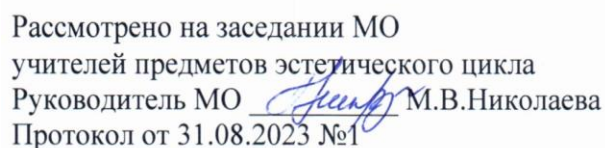 Рассмотрено на заседании МО
учителей предметов эстетического цикла
Руководитель МО ____________ М.В.Николаева
Протокол от 31.08.2023 №1